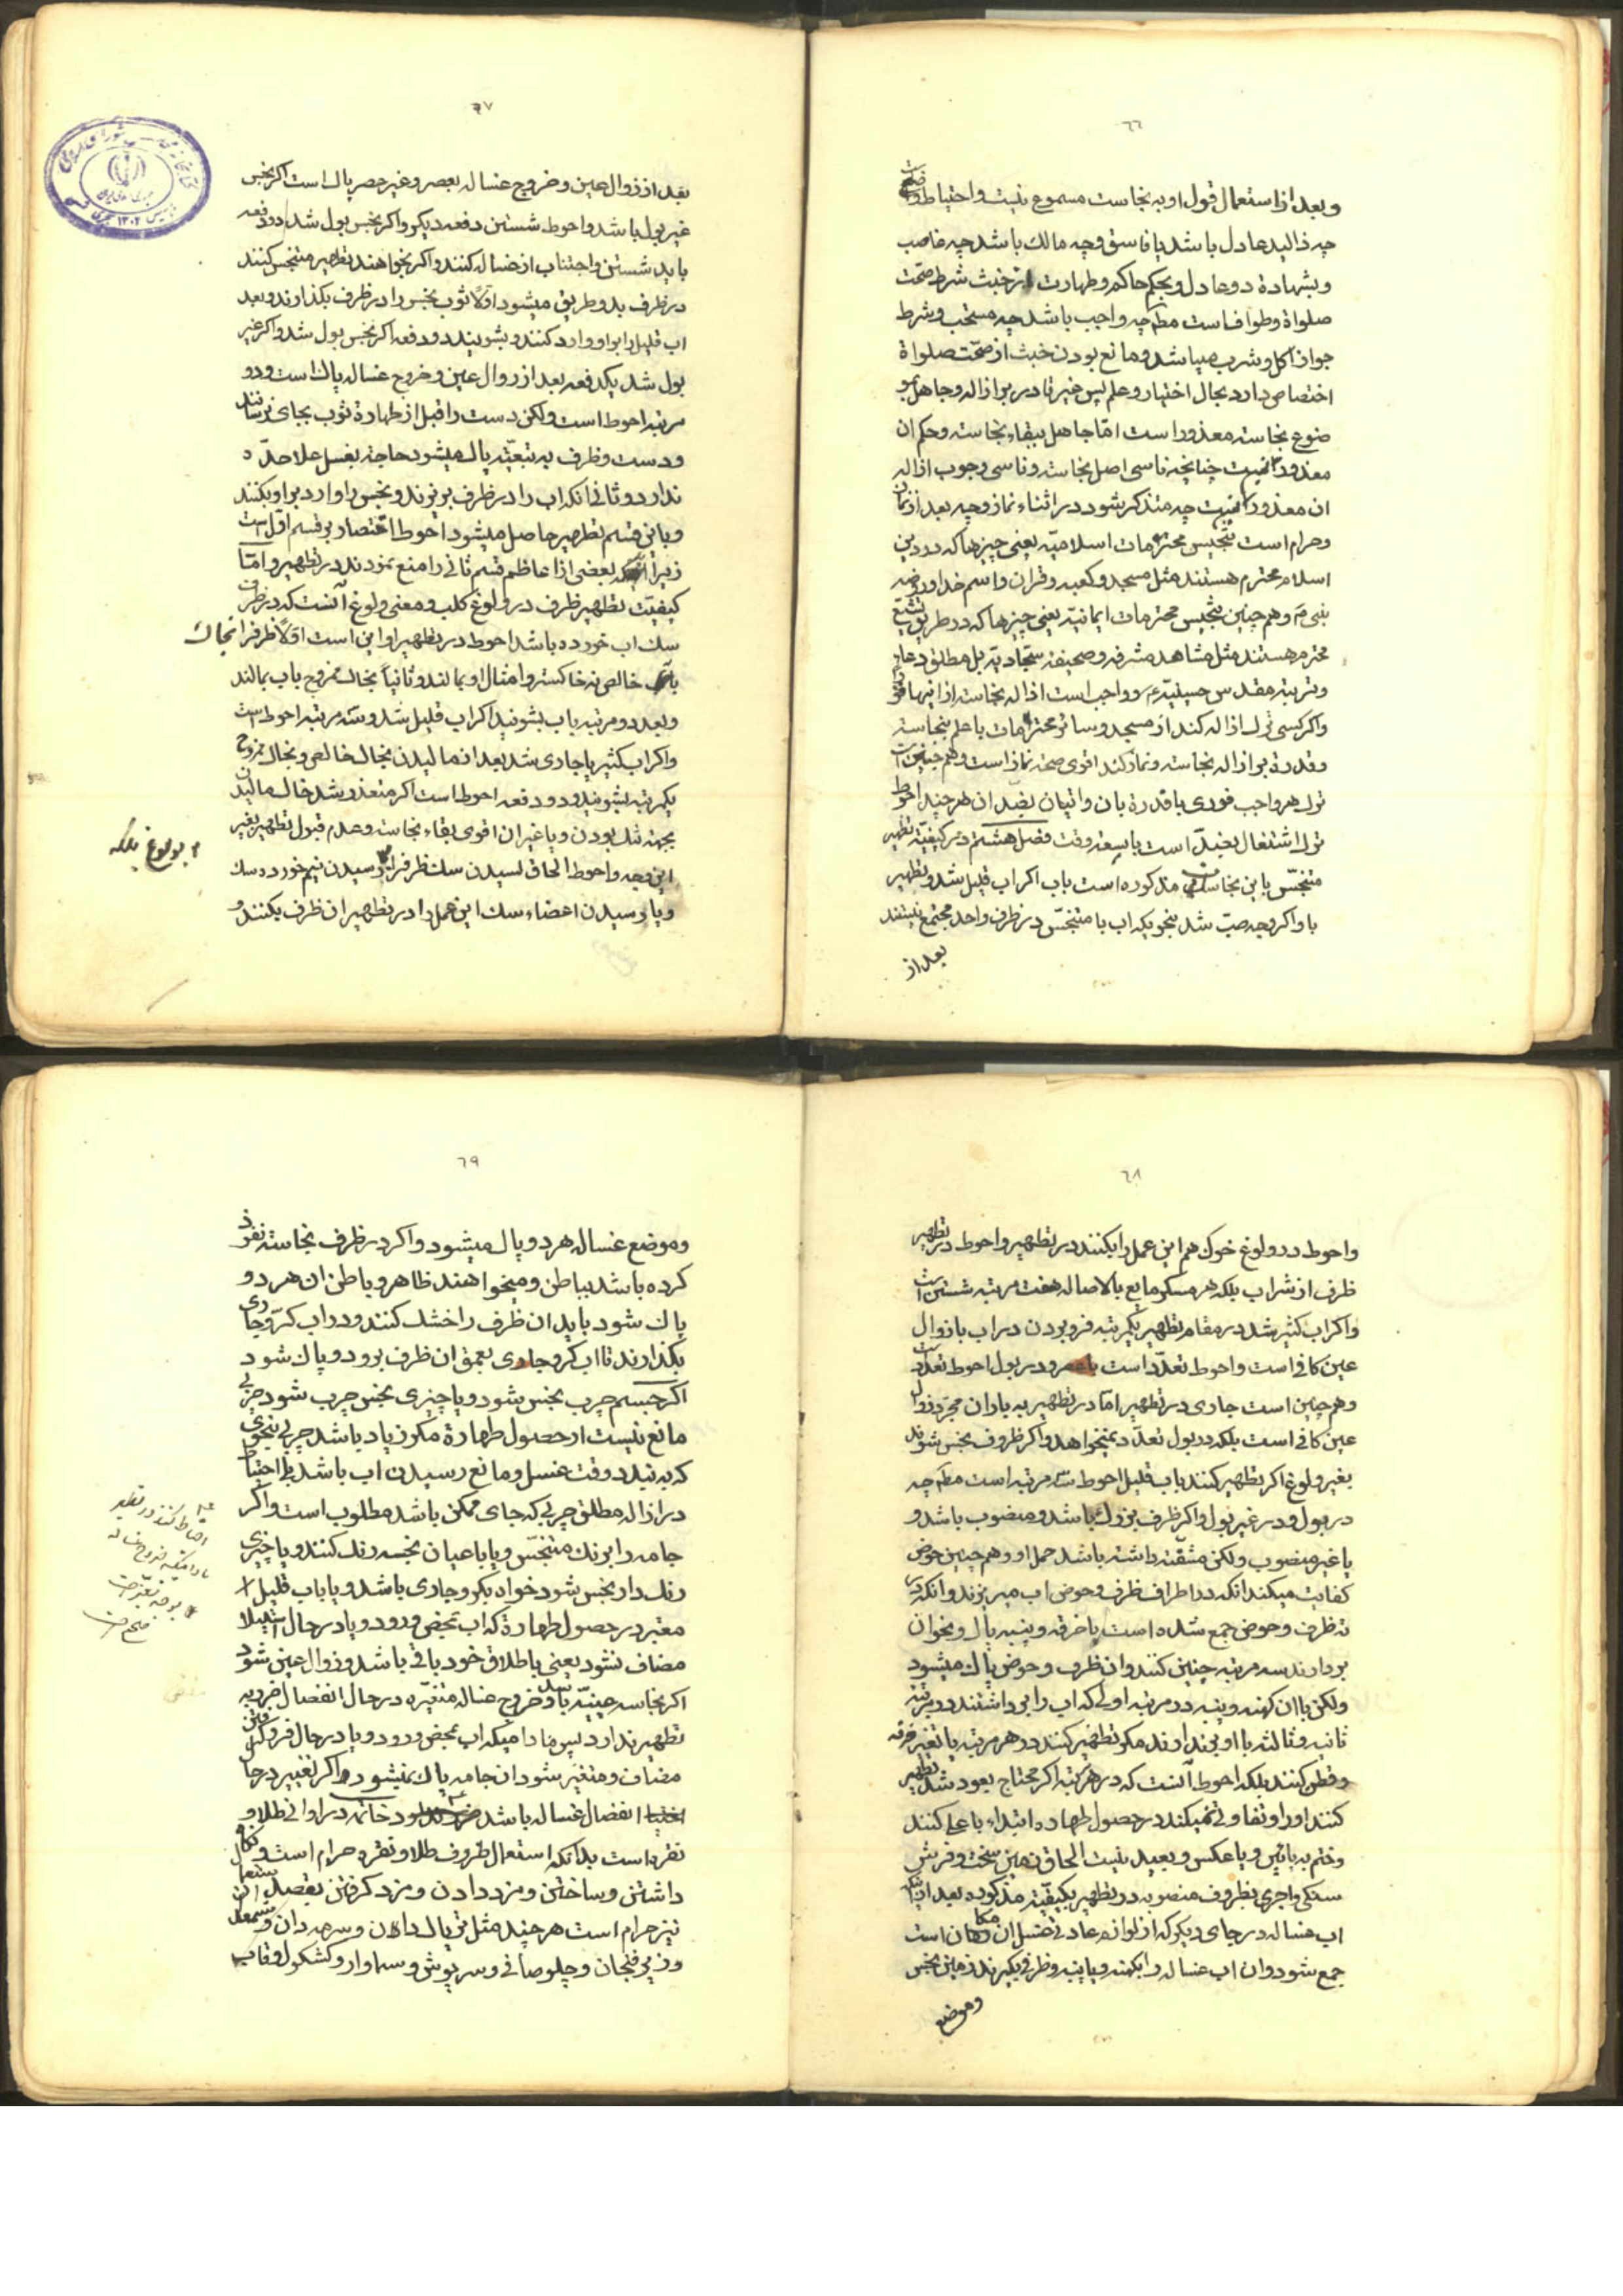 ٦٦
و بعد از استعمال قول او به نجاست مسموع نیست و احتیاط
چه ذالید عادل باشد یا فاسق و چه مالک باشد چه غاصب
و بشهادة دو عادل و بحکم حاکم و طهارت از خبث شرط صحّت
صلواة و طوافست مط چه واجب باشد چه مستحب و شرط
جواز اکل و شرب میباشد و مانع بودن خبث از صحّت صلواة
اختصاص دارد بحال اختیار و علم پس غیر قادر بر ازاله و جاهل بمو
ضوع نجاسته معذور است امّا جاهل ببقاء نجاسته و حکم ان
معذور نیست چنانچه ناسی اصل نجاسته و ناسی وجوب ازاله
ان معذور نیست چه متذکر شود در اثناء نماز و چه بعد از نماز
و حرام است تنجیس محترمات اسلامیّه یعنی چیزها که در دین
اسلام محترم هستند مثل مسجد و کعبه و قران و اسم خدا و
نبی و هم چنین تنجیس محترمات ایمانیّه یعنی چیزها که در طریق تشیّع
محترم هستند مثل مشاهد مشرفه و صحیفه سجّادیّه بل مطلق دعا
و تربته مقدس حسینیّه و واجب است ازاله نجاسته از اینها
و اگر کسی ترک ازاله کند از مسجد و سائر محترمات با علم بنجاسته
و قدرة بر ازاله نجاسته و نماز کند اقوی صحة نماز است و هم چنین است
ترک هر واجب فوری با قدرة بان و اتیان بضد ان هر چند احوط
ترک اشتغال بضدّ است با سعه وقت فصل هشتم در کیفیّة تطهیر
متنجّس باین نجاسات مذکوره است باب اگر اب قلیل شد و تطهیر
با و اگر وجه صبّ شد بنحویکه اب با متنجّس در ظرف واحد مجتمع نیستند
بعد از
٦٧
بعد از زوال عین و خروج غساله بعصر و غیر عصر پاک است اگر نجس
غیر بول باشد و احوط شستن دفعه دیگر و اگر نجس بول شد دو دفعه
باید شستن و اجتناب از غساله کنند و اگر بخواهند تطهیر متنجس کنند
در ظرف بدو طریق میشود اوّلا ثوب نجس را در ظرف بگذارند و بعد
اب قلیل را بر او وارد کنند و بشویند دو دفعه اگر نجس بول شد و اگر غیر
بول شد یکدفعه بعد از زوال عین و خروج غساله پاک است و دو
مرتبه احوط است و لکن دست را قبل از طهارة ثوب بجای نرسانند
و دست و ظرف به تبعیّه پاک میشود حاجته بغسل علاحدّه
ندارد و ثانی انکه اب را در ظرف بریزند و نجس را وارد بر او بکنند
و باین قسم تطهیر حاصل میشود احوط اقتصار بر قسم اوّل است
زیرا که بعضی از اعاظم قسم ثانی را منع نمودند در تطهیر و امّا
کیفیّت تطهیر ظرف در ولوغ کلب و معنی ولوغ آنست که در ظرف
سک اب خورده باشد احوط در تطهیر او این است اوّلا ظرف را بخاک
خالص نه خاکستر و امثال او بمالند و ثانیاً بخاک ممزوج باب بمالند
و بعد دو مرتبه باب بشویند اگر اب قلیل شد و سه مرتبه احوط است
و اگر اب کثیر یا جاری شد بعد از مالیدن بخاک خالص و بخاک ممزوج
یکمرتبه بشویند و دو دفعه احوط است اگر متعذر شد خاک مالیدن
بجهته تنک بودن و یا غیر ان اقوی بقاء نجاسته و عدم قبول تطهیر بغیر
این وجه و احوط الحاق لسیدن سک ظرف را و رسیدن نیم خورده سک
و یا رسیدن اعضاء سک این عمل را در تطهیر ان ظرف بکنند و
بولوغ بلکه
٦٨
و احوط در ولوغ خوک هم این عمل را بکنند در تطهیر و احوط در تطهیر
ظرف از شراب بلکه هر مسکر مایع بالاصاله هفت مرتبه شستن است
و اگر اب کثیر شد در مقام تطهیر یکمرتبه فرو بردن در اب با زوال
عین کافی است و احوط تعدّد است و در بول احوط تعدّد
و هم چنین است جاری در تطهیر امّا در تطهیر به باران مجرّد زوال
عین کافی است بلکه در بول تعدّد نمیخواهد و اگر ظروف نجس شوند
بغیر ولوغ اگر تطهیر کنند باب قلیل احوط سه مرتبه است مط چه
در بول و در غیر بول و اگر ظرف بزرک باشد و منصوب باشد و
یا غیر منصوب و لکن مشقّته داشته باشد حمل او و هم چنین حوض
کفایت میکند انکه در اطراف ظرف و حوض اب میریزند و انکه در
ته ظرف و حوض جمع شده است با خرقه و پنبه پاک و نحو ان
بردارند سه مرتبه چنین کنند و ان ظرف و حوض پاک میشود
و لکن با ان کهنه و پنبه در مرتبه اولی که اب را برداشتند در مرتبه
ثانیه و ثالثه با او برندارند مگر تطهیر کنند در هر مرتبه یا تغییر خرقه
و قطن کنند بلکه احوط آنست که در هر مرتبه اگر محتاج بعود شد تطهیر
کنند او را و تفاوتی نمیکند در حصول طهاره ابتداء باعلی کنند
و ختم به پائین و یا عکس و بعید نیست الحاق زمین سخت و فرش
سنکی و اجری بظروف منصوبه در تطهیر بکیفیّته مذکوره بعد از
اب غساله در جای دیگر که از لوازم عادی غسل ان مکان است
جمع شود و ان اب غساله را بکهنه و یا پنبه و ظرفی بگیرند زمین نجس
و موضع
٦٩
و موضع غساله هر دو پاک میشود و اگر در ظرف نجاسته نفوذ
کرده باشد بباطن و میخواهند ظاهر و باطن ان هر دو
پاک شود باید ان ظرف را خشک کنند و در اب کرّ و جاری
بگذارند تا اب کر و جاری بعمق ان ظرف برود و پاک شود
اگر جسم چرب نجس بشود و یا چیزی نجس چرب شود چربی
مانع نیست از حصول طهارة مگر زیاد باشد چربی بنحوی
که به بندد وقت غسل و مانع رسیدن اب باشد بلی احتیاط
در ازاله مطلق چربی که جای ممکن باشد مطلوب است و اگر
جامه را برنک متنجّس و یا باعیان نجسه رنک کنند و یا چیزی
رنک دار نجس شود خواه بکر و جاری باشد و یا باب قلیل
معتبر در حصول طهارة که اب بمحض ورود و یا در حال استیلا
مضاف نشود یعنی باطلاق خود باقی باشد و زوال عین شود
اگر نجاسه عینیّه باشد و خروج غساله متغیّره در حال انفصال ضرر به
تطهیر ندارد پس مادامیکه اب بمحض ورود و یا در حال فرو گرفتن
مضاف و متغیر شود ان جامه پاک نمیشود و اگر تغییر در حال
انفصال غساله باشد خاتمه در اوانی طلا و
نقره است بدانکه استعمال ظروف طلا و نقره حرام است و
داشتن و ساختن و مزد دادن و مزد گرفتن بقصد استعمال
نیز حرام است هر چند مثل تریاک دان و سرمه دان و
و زیر فنجان و چلو صافی و سرپوش و سماوار و کشکول و قاب